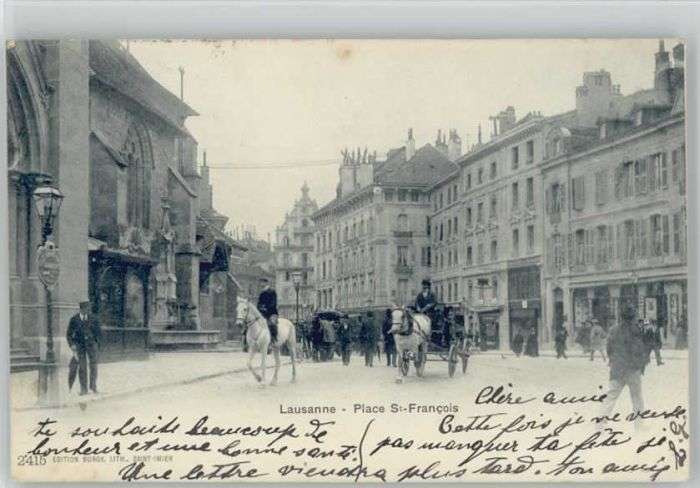 Lausanne - Place St-François
Chère amie
Cette fois je ne veux
pas manquer ta fête je
te souhaite beaucoup de
bonheur et une bonne santé
Une lettre viendra plus tard. ton amie
2415 EDITION BURGY, LITH., SAINT-IMIER